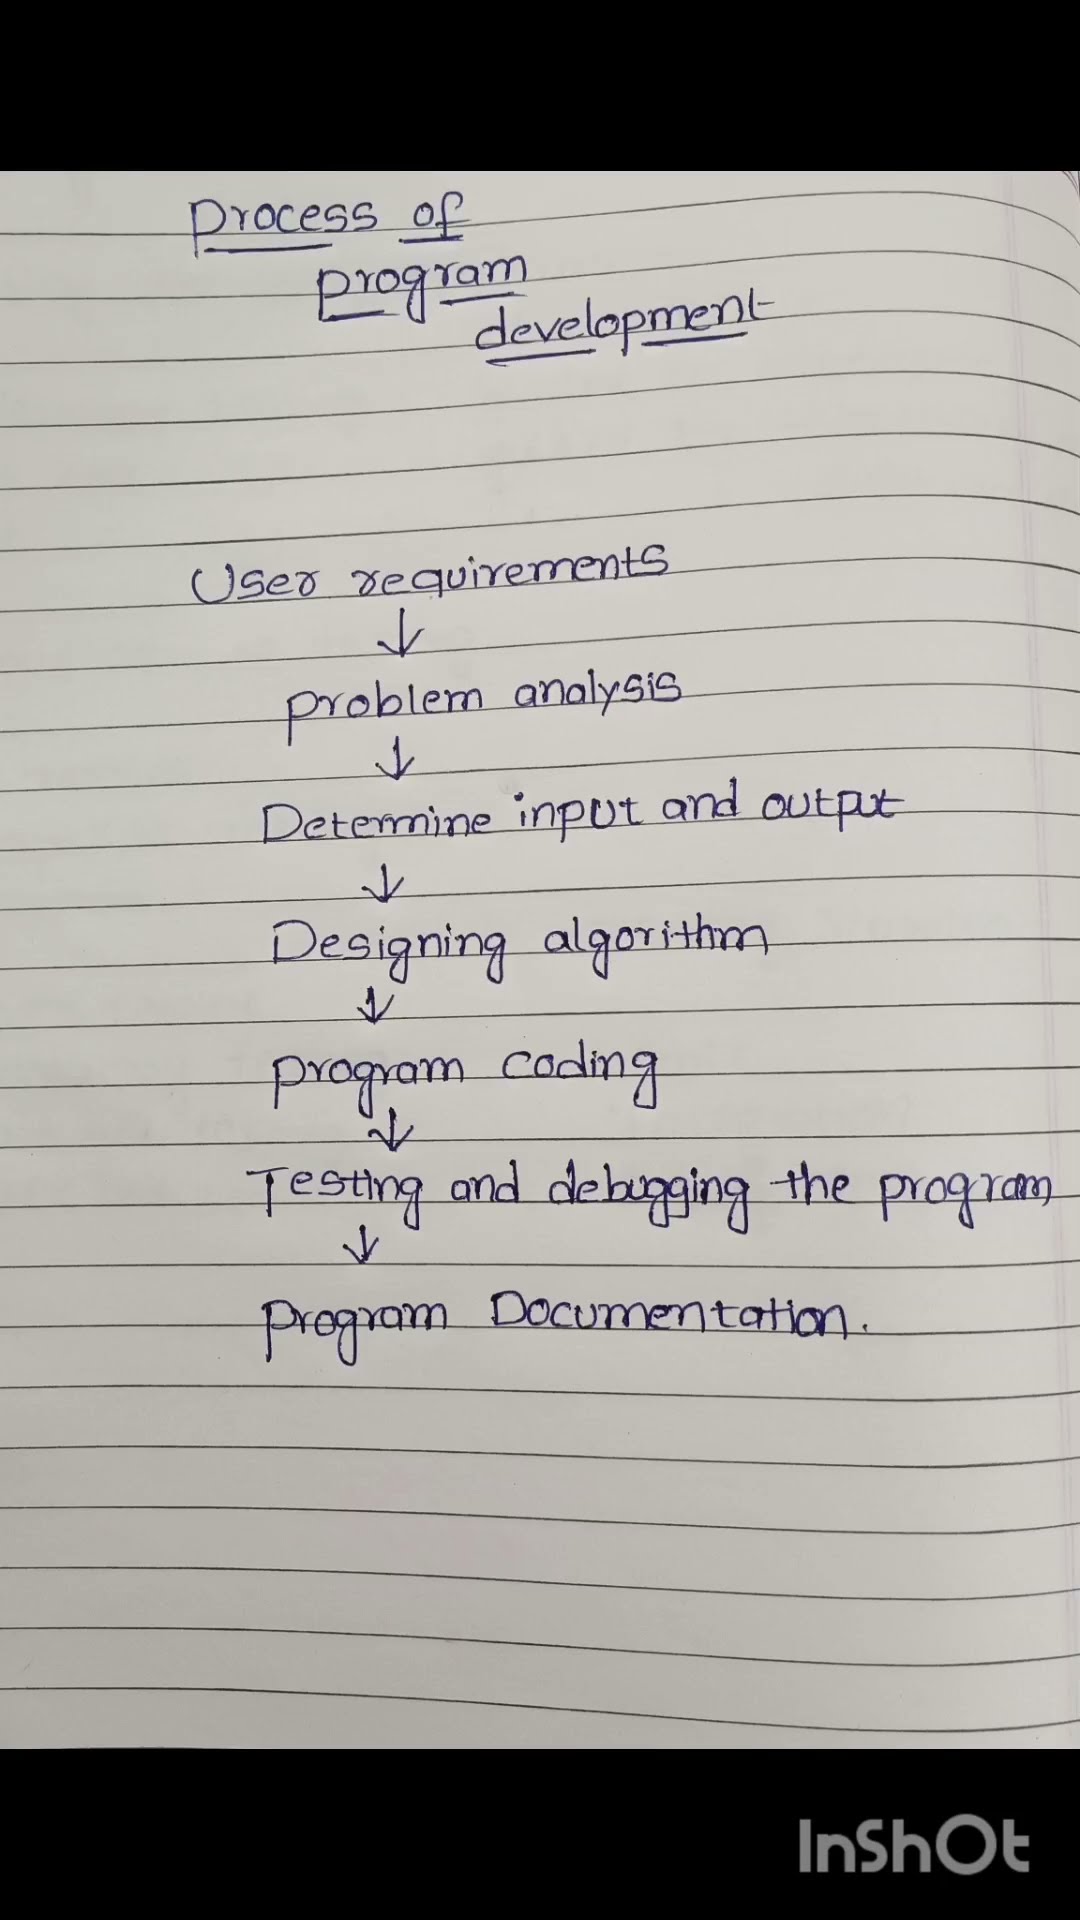 Process of
program
development
User requirements
↓
problem analysis
↓
Determine input and output
↓
Designing algorithm
↓
program coding
↓
Testing and debugging the program
↓
program Documentation.
InShOt